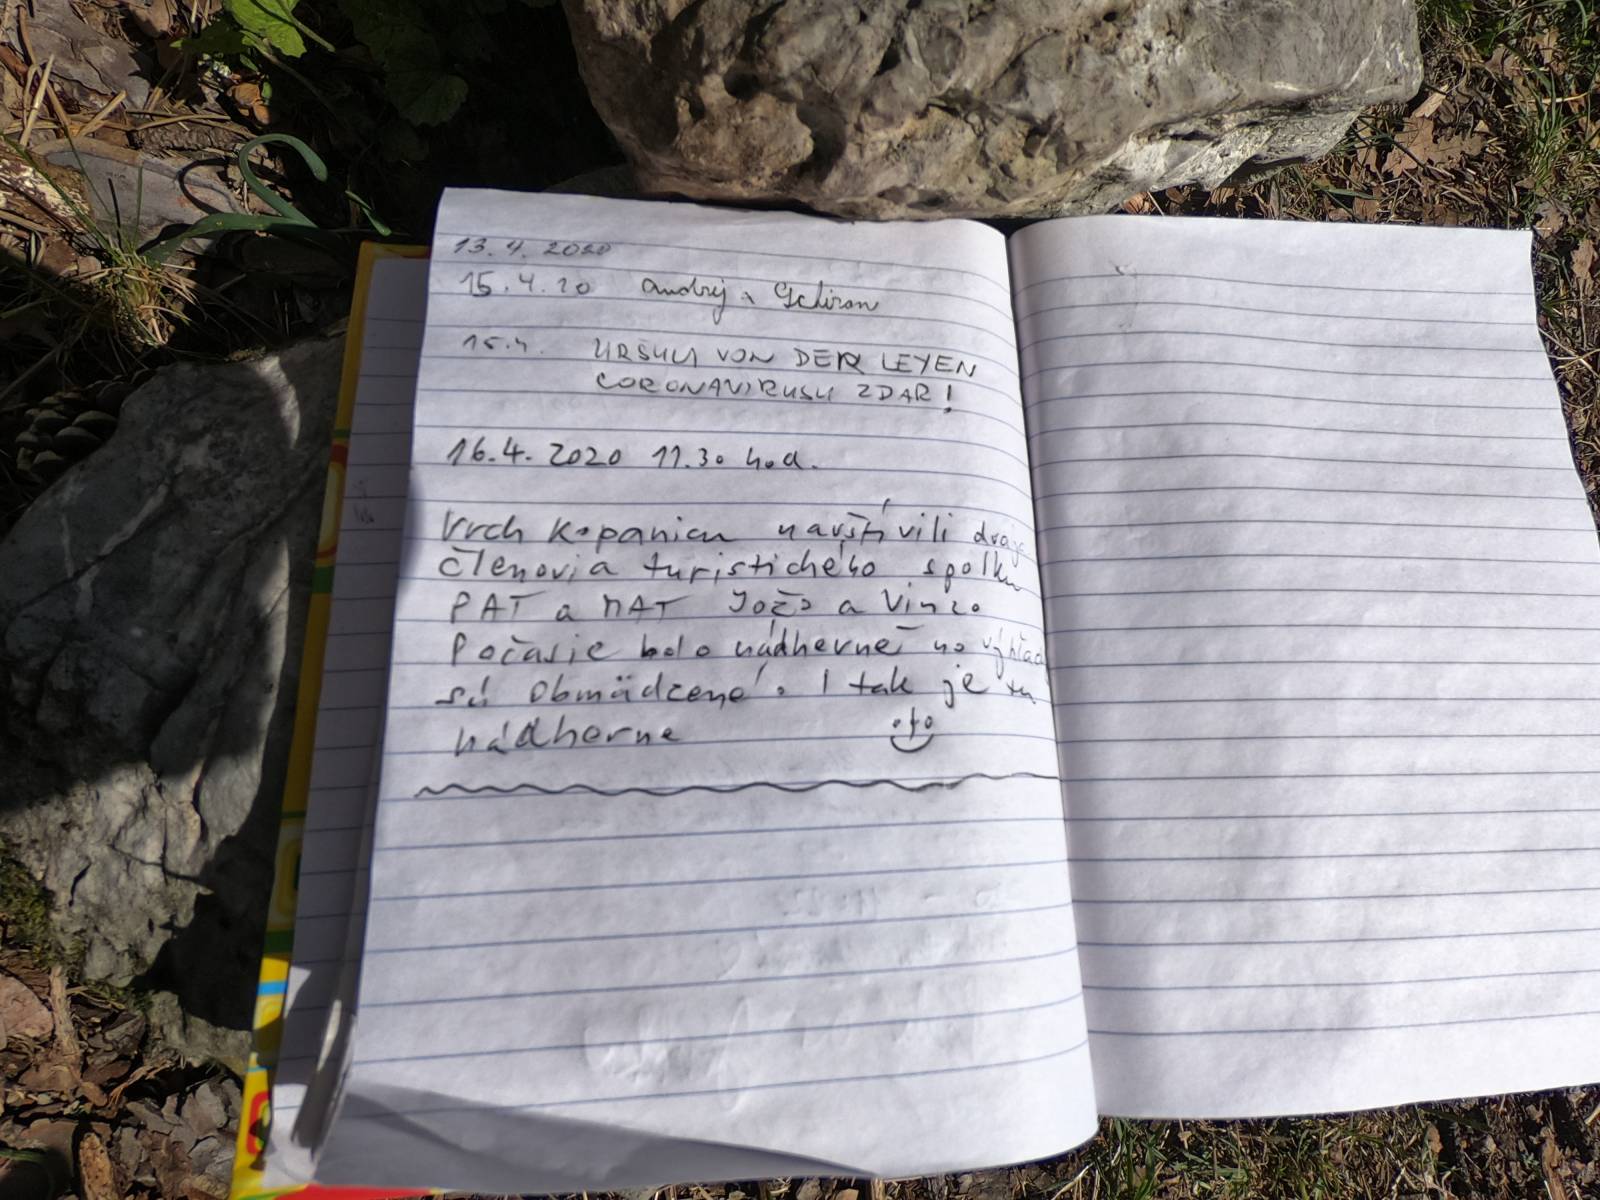 13.4.2020
15.4.20 Andrej
15.4. URSULI VON DER LEYEN
CORONAVIRUSU ZDAR!
16.4.2020 11.30 hod.
Vrch Kopanicu navštívili dvaja
členovia turistického spolku
PAT a MAT Jožo a Vinzo
Počasie bolo nádherné no výhľady
sú obmädzené. I tak je tu
nádherne